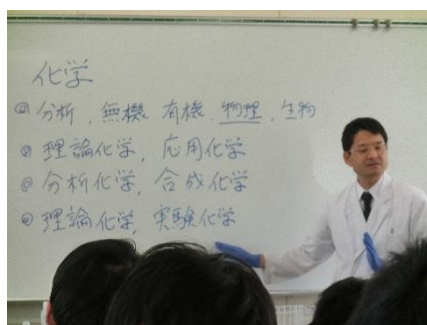 化学
分析、無機 有機、物理、生物
理論化学, 応用化学
分析化学, 合成化学
理論化学, 実験化学